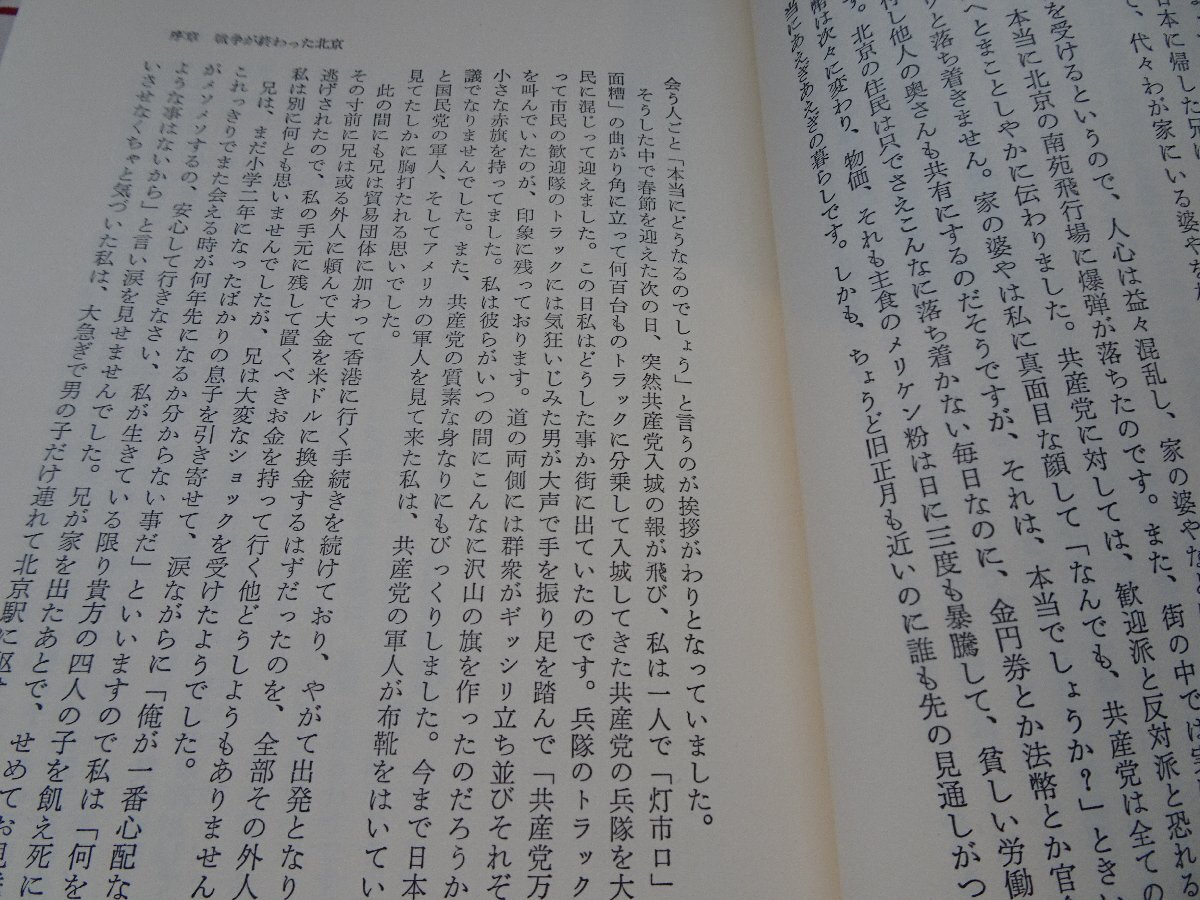 日本に帰した
て、代々わが家にいる婆や
を受けるというので、人心は益々混乱し、家の婆や
本当に北京の南苑飛行場に爆弾が落ちたのです。また、街の中では
へとまことしやかに伝わりました。共産党に対しては、歓迎派と反対派と恐れる
りと落ち着きません。家の婆やは私に真面目な顔して「なんでも、共産党は全ての
行し他人の奥さんも共有にするのだそうですが、それは、本当でしょうか?」ときい
す。北京の住民は只でさえこんなに落ち着かない毎日なのに、金円券とか法幣とか官
幣は次々に変わり、物価、それも主食のメリケン粉は日に三度も暴騰して、貧しい労働
当にあえぎあえぎの暮らしです。しかも、ちょうど旧正月も近いのに誰も先の見通しがつ
会う人ごと「本当にどうなるのでしょう」と言うのが挨拶がわりとなっていました。
そうした中で春節を迎えた次の日、突然共産党入城の報が飛び、私は一人で「灯市口」
面糟」の曲がり角に立って何百台ものトラックに分乗して入城してきた共産党の兵隊を大
民に混じって迎えました。この日私はどうした事か街に出ていたのです。兵隊のトラック
って市民の歓迎隊のトラックには気狂いじみた男が大声で手を振り足を踏んで「共産党万
を叫んでいたのが、印象に残っております。道の両側には群衆がギッシリ立ち並びそれぞ
小さな赤旗を持ってました。私は彼らがいつの間にこんなに沢山の旗を作ったのだろうか
議でなりませんでした。また、共産党の質素な身なりにもびっくりしました。今まで日本
と国民党の軍人、そしてアメリカの軍人を見て来た私は、共産党の軍人が布靴をはいてい
見てたしかに胸打たれる思いでした。
此の間にも兄は貿易団体に加わって香港に行く手続きを続けており、やがて出発となり
その寸前に兄は或る外人に頼んで大金を米ドルに換金するはずだったのを、全部その外人
逃げされたので、私の手元に残して置くべきお金を持って行く他どうしようもありません
私は別に何とも思いませんでしたが、兄は大変なショックを受けたようでした。
兄は、まだ小学二年になったばかりの息子を引き寄せて、涙ながらに「俺が一番心配な
これっきりでまた会える時が何年先になるか分からない事だ」といいますので私は「何を
がメソメソするの、安心して行きなさい、私が生きている限り貴方の四人の子を飢え死に
ような事はないから」と言い涙を見せませんでした。兄が家を出たあとで、せめてお見
いさせなくちゃと気づいた私は、大急ぎで男の子だけ連れて北京駅に
序章　戦争が終わった北京